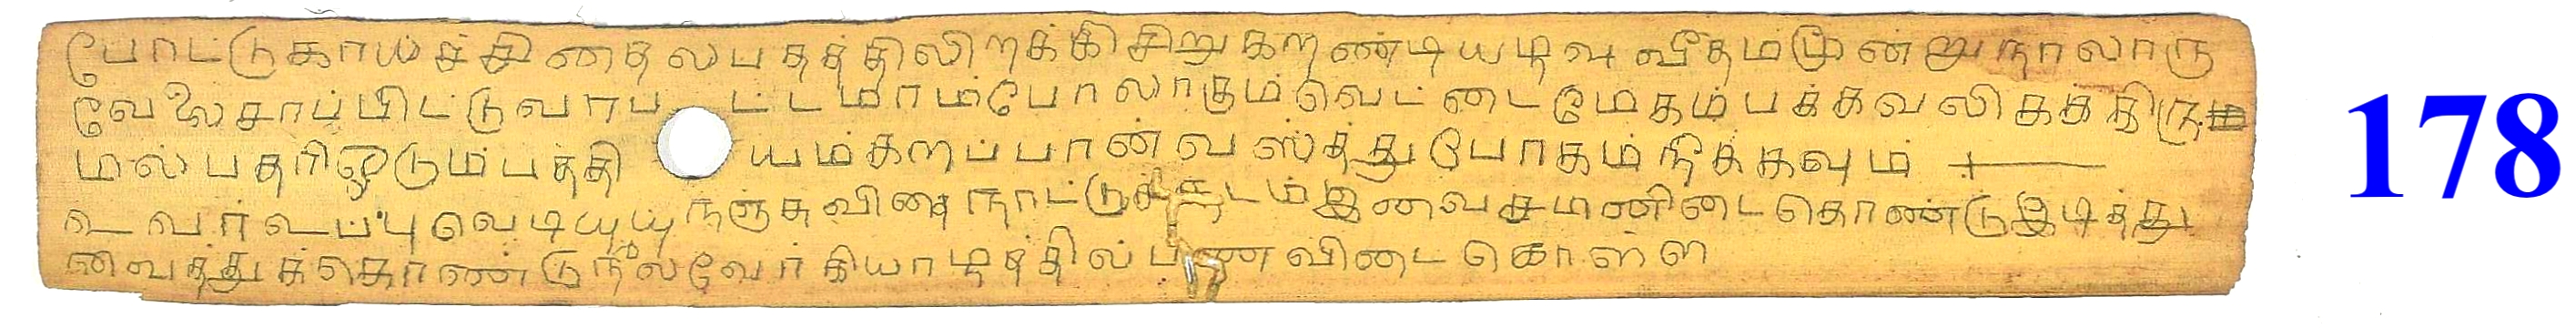 போட்டுகாய்ச்சிதைலபதத்திலிறக்கிசிறுகறண்டியடிவு வீதம்மூன்றுநாலாரு
வேலைசாப்பிட்டுவாரப ட்டமாம்போலாகும்வெட்டைமேகம்பக்கவலிகக்கிரும
மல்பதறிஒடும்பத்தி யம்கறப்பான்வஸ்த்துபோகம்நீக்கவும்
உவர்உப்புவெடியுயு நஞ்சுவிஷநாட்டு டம்இவைசமனிடைகொண்டுஇடித்து
வைத்துக்கொண்டுநீலவேர்கியாழத்தில்பணவிடைகொள்ள
178